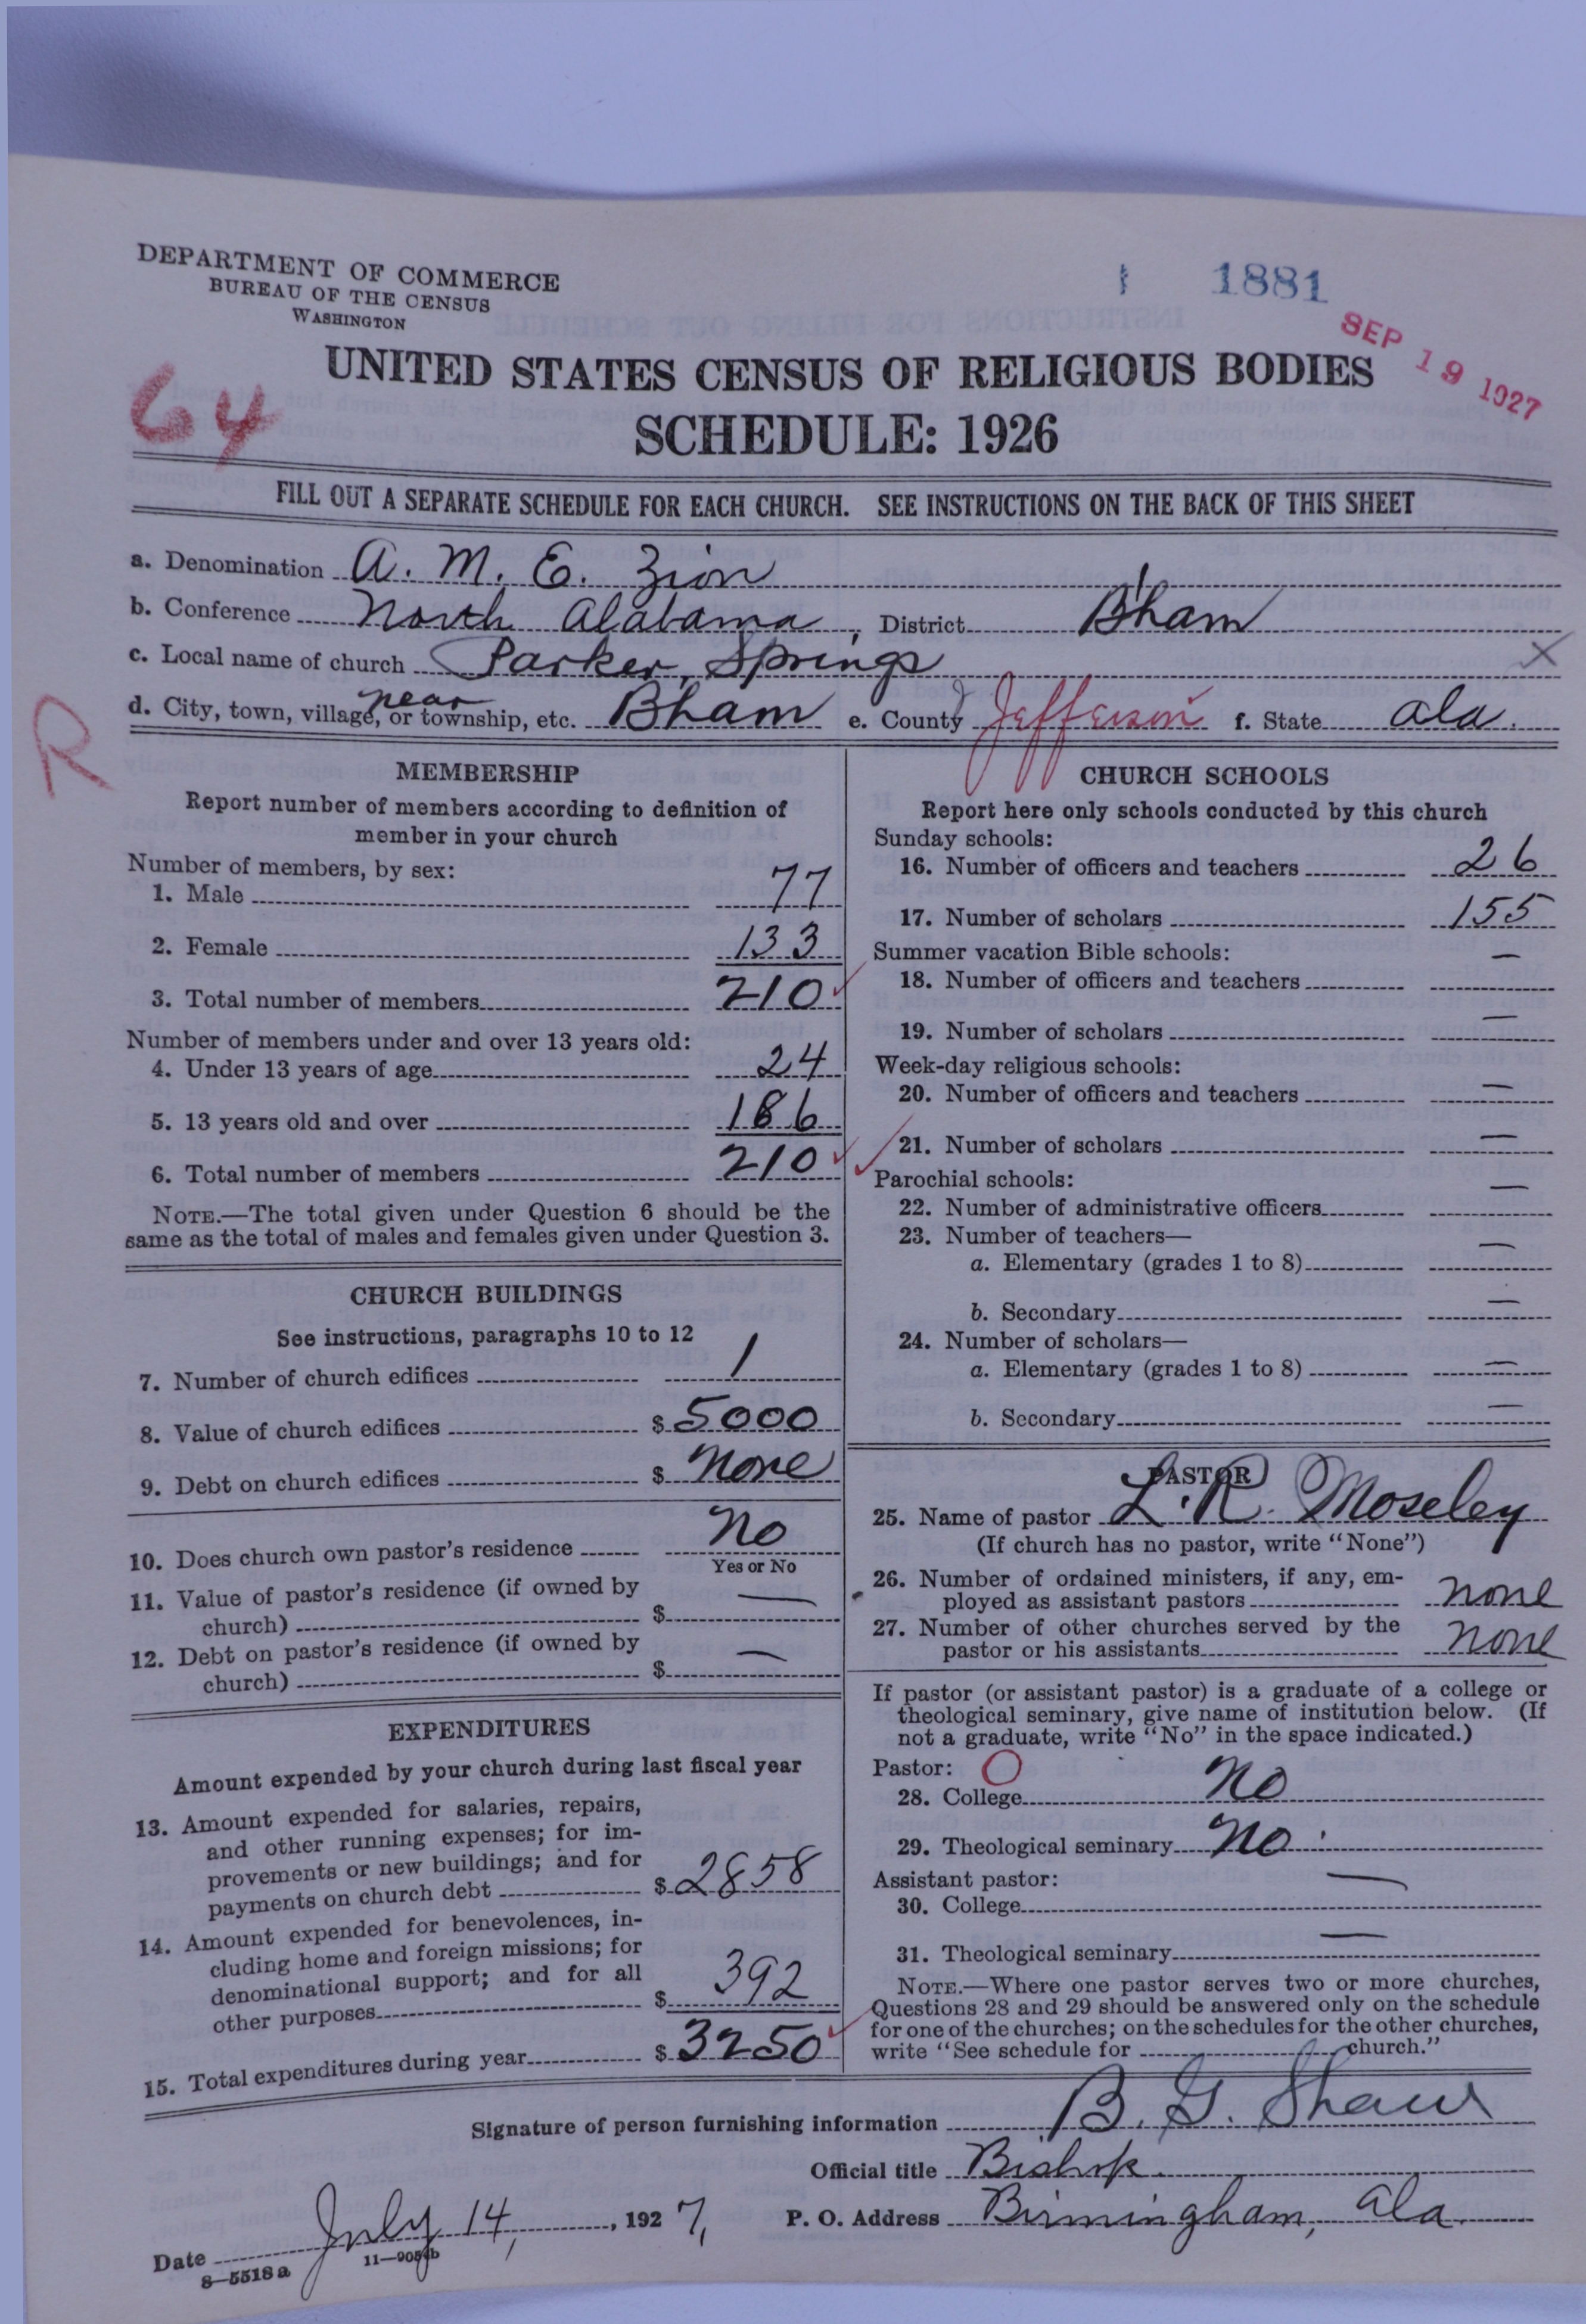 DEPARTMENT OF COMMERCE
BUREAU OF THE CENSUS
WASHINGTON
1881
SEP 19 1927
64
UNITED STATES CENSUS OF RELIGIOUS BODIES
SCHEDULE: 1926
FILL OUT A SEPARATE SCHEDULE FOR EACH CHURCH. SEE INSTRUCTIONS ON THE BACK OF THIS SHEET
a. Denomination A. M. E. Zion
b. Conference North Alabama, District B'ham
c. Local name of church Parker Springs X
d. City, town, village, or township, etc. near Bham e. County Jefferson f. State Ala.
R
MEMBERSHIP
Report number of members according to definition of
member in your church
Number of members, by sex:
1. Male 77
2. Female 133
3. Total number of members 210
Number of members under and over 13 years old:
4. Under 13 years of age 24
5. 13 years old and over 186
6. Total number of members 210
NOTE.—The total given under Question 6 should be the
same as the total of males and females given under Question 3.
CHURCH BUILDINGS
See instructions, paragraphs 10 to 12
7. Number of church edifices 1
8. Value of church edifices $ 5000
9. Debt on church edifices $ None
10. Does church own pastor's residence No
Yes or No
11. Value of pastor's residence (if owned by
church) $ —
12. Debt on pastor's residence (if owned by
church) $ —
EXPENDITURES
Amount expended by your church during last fiscal year
13. Amount expended for salaries, repairs,
and other running expenses; for im-
provements or new buildings; and for
payments on church debt $ 2858
14. Amount expended for benevolences, in-
cluding home and foreign missions; for
denominational support; and for all
other purposes $ 392
15. Total expenditures during year $ 3250
CHURCH SCHOOLS
Report here only schools conducted by this church
Sunday schools:
16. Number of officers and teachers 26
17. Number of scholars 155
Summer vacation Bible schools:
18. Number of officers and teachers —
19. Number of scholars —
Week-day religious schools:
20. Number of officers and teachers —
21. Number of scholars —
Parochial schools:
22. Number of administrative officers —
23. Number of teachers—
a. Elementary (grades 1 to 8) —
b. Secondary —
24. Number of scholars—
a. Elementary (grades 1 to 8) —
b. Secondary —
PASTOR
25. Name of pastor L. R. Moseley
(If church has no pastor, write "None")
26. Number of ordained ministers, if any, em-
ployed as assistant pastors none
27. Number of other churches served by the
pastor or his assistants none
If pastor (or assistant pastor) is a graduate of a college or
theological seminary, give name of institution below. (If
not a graduate, write "No" in the space indicated.)
Pastor: O
28. College No
29. Theological seminary No
Assistant pastor:
30. College —
31. Theological seminary —
NOTE.—Where one pastor serves two or more churches,
Questions 28 and 29 should be answered only on the schedule
for one of the churches; on the schedules for the other churches,
write "See schedule for church."
Signature of person furnishing information B. G. Shaw
Official title Bishop
Date July 14, 1927, P. O. Address Birmingham, Ala.
8—5518a 11—9054b